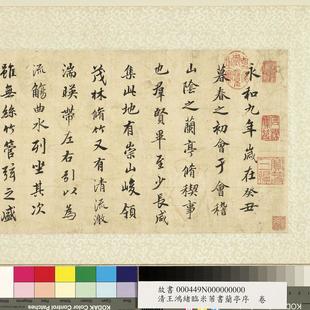 永和九年歲在癸丑
暮春之初會于會稽
山陰之蘭亭脩稧事
也群賢畢至少長咸
集此地有崇山峻領
茂林脩竹又有清流激
湍暎帶左右引以為
流觴曲水列坐其次
雖無絲竹管弦之盛
故書 000449N000000000
清王鴻緒臨米芾書蘭亭序 卷